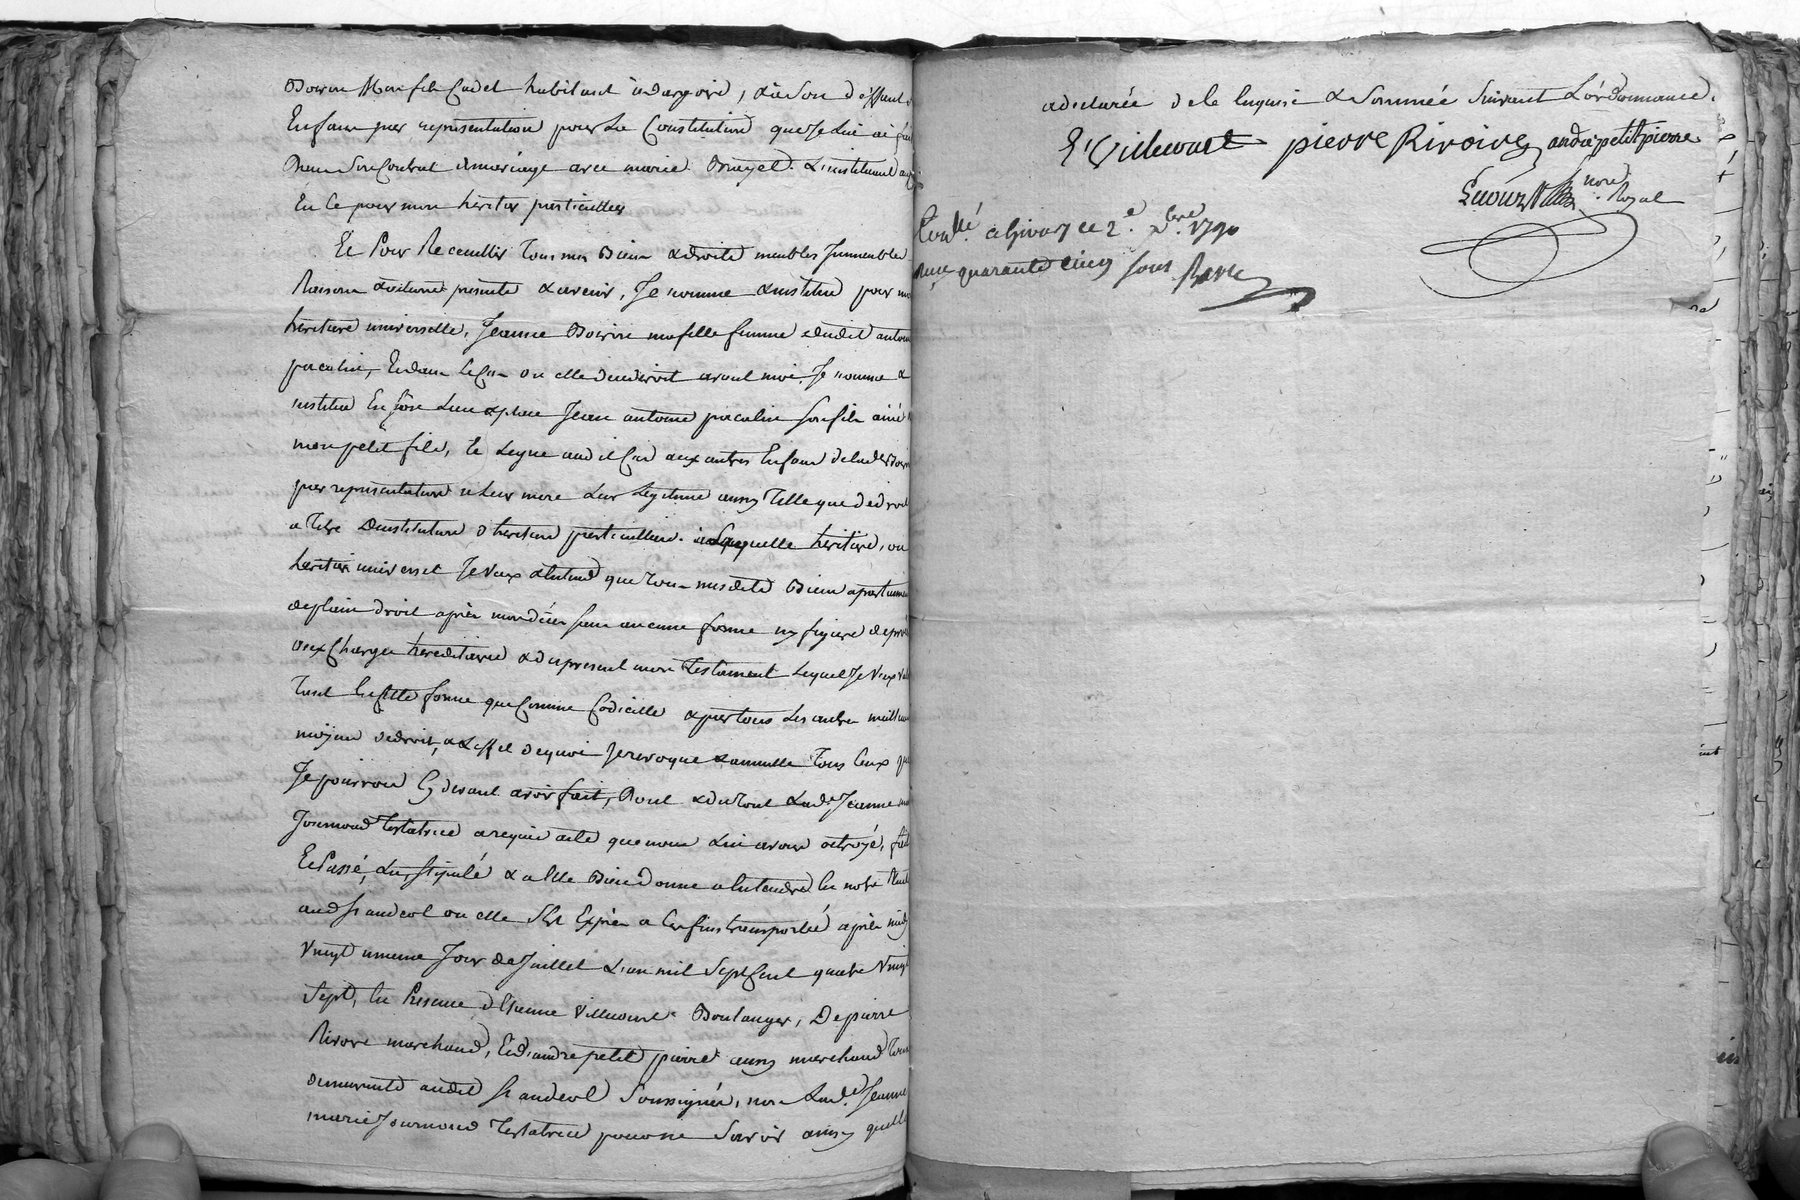 Boiron Mon fils Cadet habitant à dargoire, & à Son deffaut
Enfans par representation pour La Constitution que Je Lui ai
Dans Son Contrat de mariage avec marie Bruyel. L'instituant
En Ce pour mon héritier particullier
Et Pour Receuillir Tous mes Biens & droits meubles Immeubles
Raisons & actions présents & avenir, Je nomme & institue pour
héritiere universelle, Jeanne Boiron ma fille femme dudit antoine
pacalin, Et dans Le Cas ou elle decederoit avant moi, Je nomme &
institue En Son Lieu & place Jean antoine pacalin Son fils ainé
mon petit fils, Et Legue aud. Cas aux autres Enfans de lad. Boiron
par representation de Leur mere Leur Legitime aussy Telle que de droit
a Titre D'institution d'heritiers particulliers. à Laquelle héritiere, ou
héritier universel Je veux & entend que Tous mesdits Biens apartiennent
de plein droit après mon décès sans aucune forme ny figure de procès
aux Charges héréditaires & du présent mon Testament Lequel Je Veux
en Cette forme que Comme Codicille & par tous Les autres meilleurs
moyens de droit, a L'effet de quoi Je revoque & annulle Tous Ceux
Je pourrois Cy devant avoir fait, Dont & du Tout Lad. Jeanne
Journoud Testatrice a requis acte que nous Lui avons octroyé, fait
Et Passé, Lu, Stipulé & a Elle Bien donné a Entendre En notre Etude
aud. St andeol ou elle S'est Exprès a Ces fins transportée après midy
Vingt unieme Jour de Juillet L'an mil Sept Cent quatre Vingt
Sept, En Presence d'Etienne Villecourt Boulanger, De pierre
Rivoire marchand, Et d'andré petit pierre aussy marchand Tous
demeurants audit St andeol Soussignés, non Lad. Jeanne
marie Journoud Testatrice pour ne Savoir ainsy quelle
a declarée de le Enquise & Sommée Suivant L'ordonnance.
E. Villecourt pierre Rivoire andré petit pierre
nore. Royal
Conllé. a Givors ce 2e. Xbre. 1790
Reçu quarante Cinq Sous